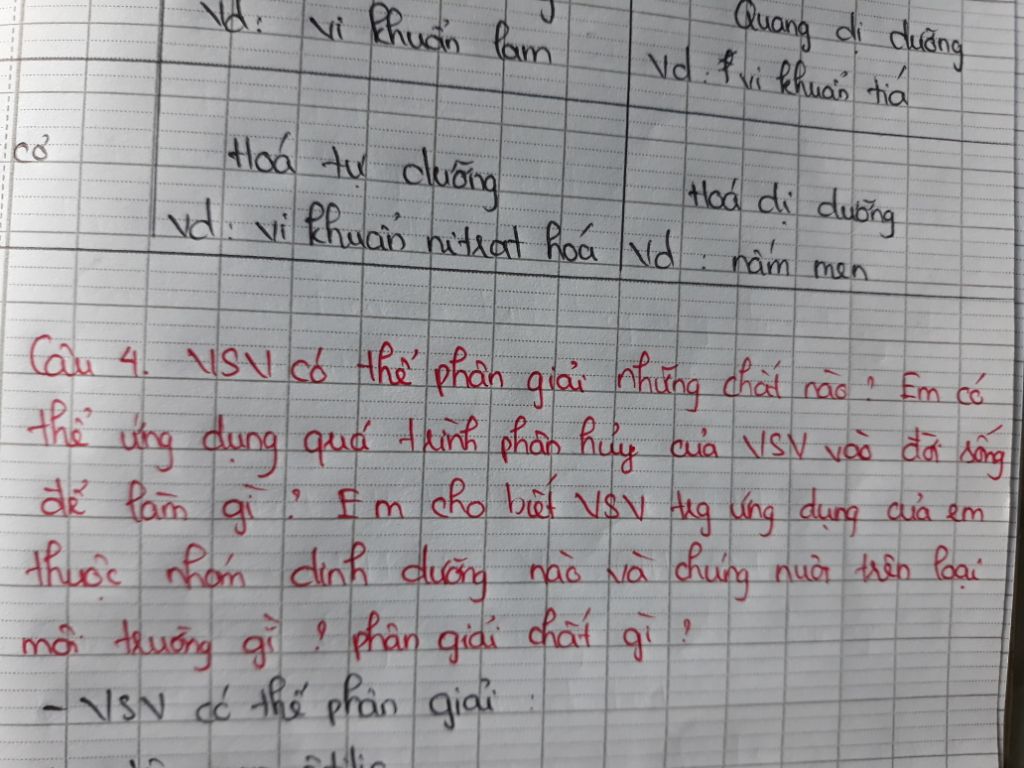 Vd: vi khuẩn lam
Quang dị dưỡng
Vd: vi khuẩn tía
cơ
Hoá tự dưỡng
Vd: vi khuẩn nitrat hoá
Hoá dị dưỡng
Vd: nấm men
Câu 4. VSV có thể phân giải những chất nào? Em có
thể ứng dụng quá trình phân hủy của VSV vào đời sống
để làm gì? Em cho biết VSV trg ứng dụng của em
thuộc nhóm dinh dưỡng nào và chúng nuôi trên loại
môi trường gì? phân giải chất gì?
- VSV có thể phân giải: